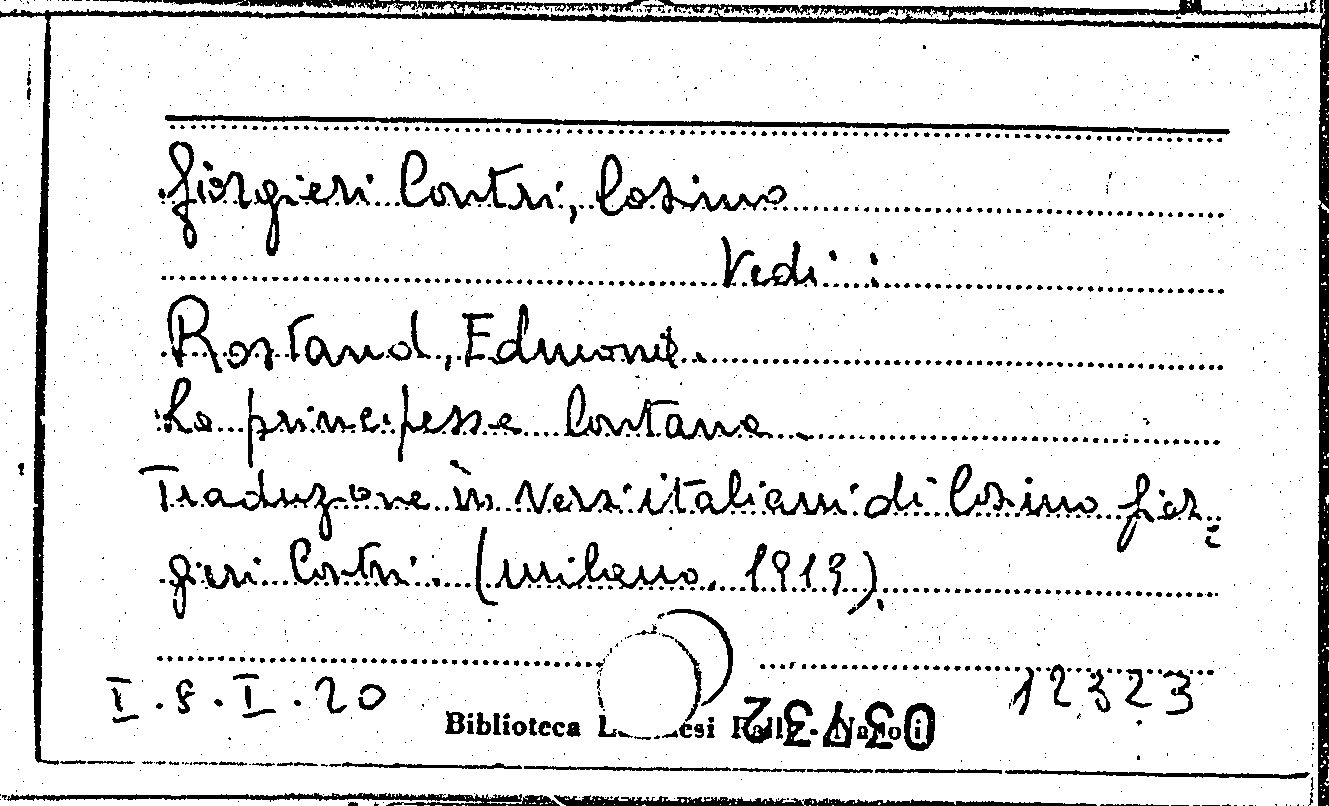 Giorgieri Contri, Cosimo
Vedi :
Rostand, Edmond.
La principessa lontana.
Traduzione in versi italiani di Cosimo Gior-
gieri Contri. (Milano, 1919).
I.8.I.20
12323
Biblioteca